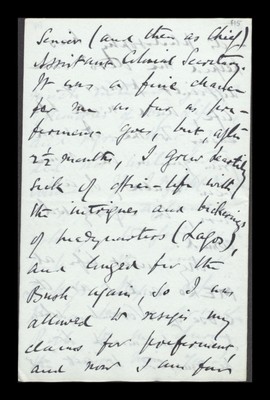 Senior (and then as Chief)
Assistant Colonial Secretary.
It was a fine chance
for me as far as pre-
ferment goes, but, after
2½ months, I grew heartily
sick of office-life with
the intrigues and bickerings
of headquarters (Lagos),
and longed for the
Bush again, so I was
allowed to resign my
claims for preferment,
and now I am far